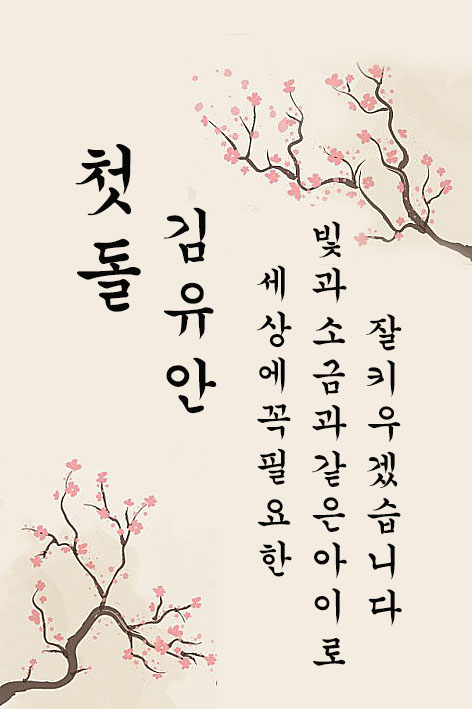 첫돌
김유안
세상에꼭필요한
빛과소금과같은아이로
잘키우겠습니다